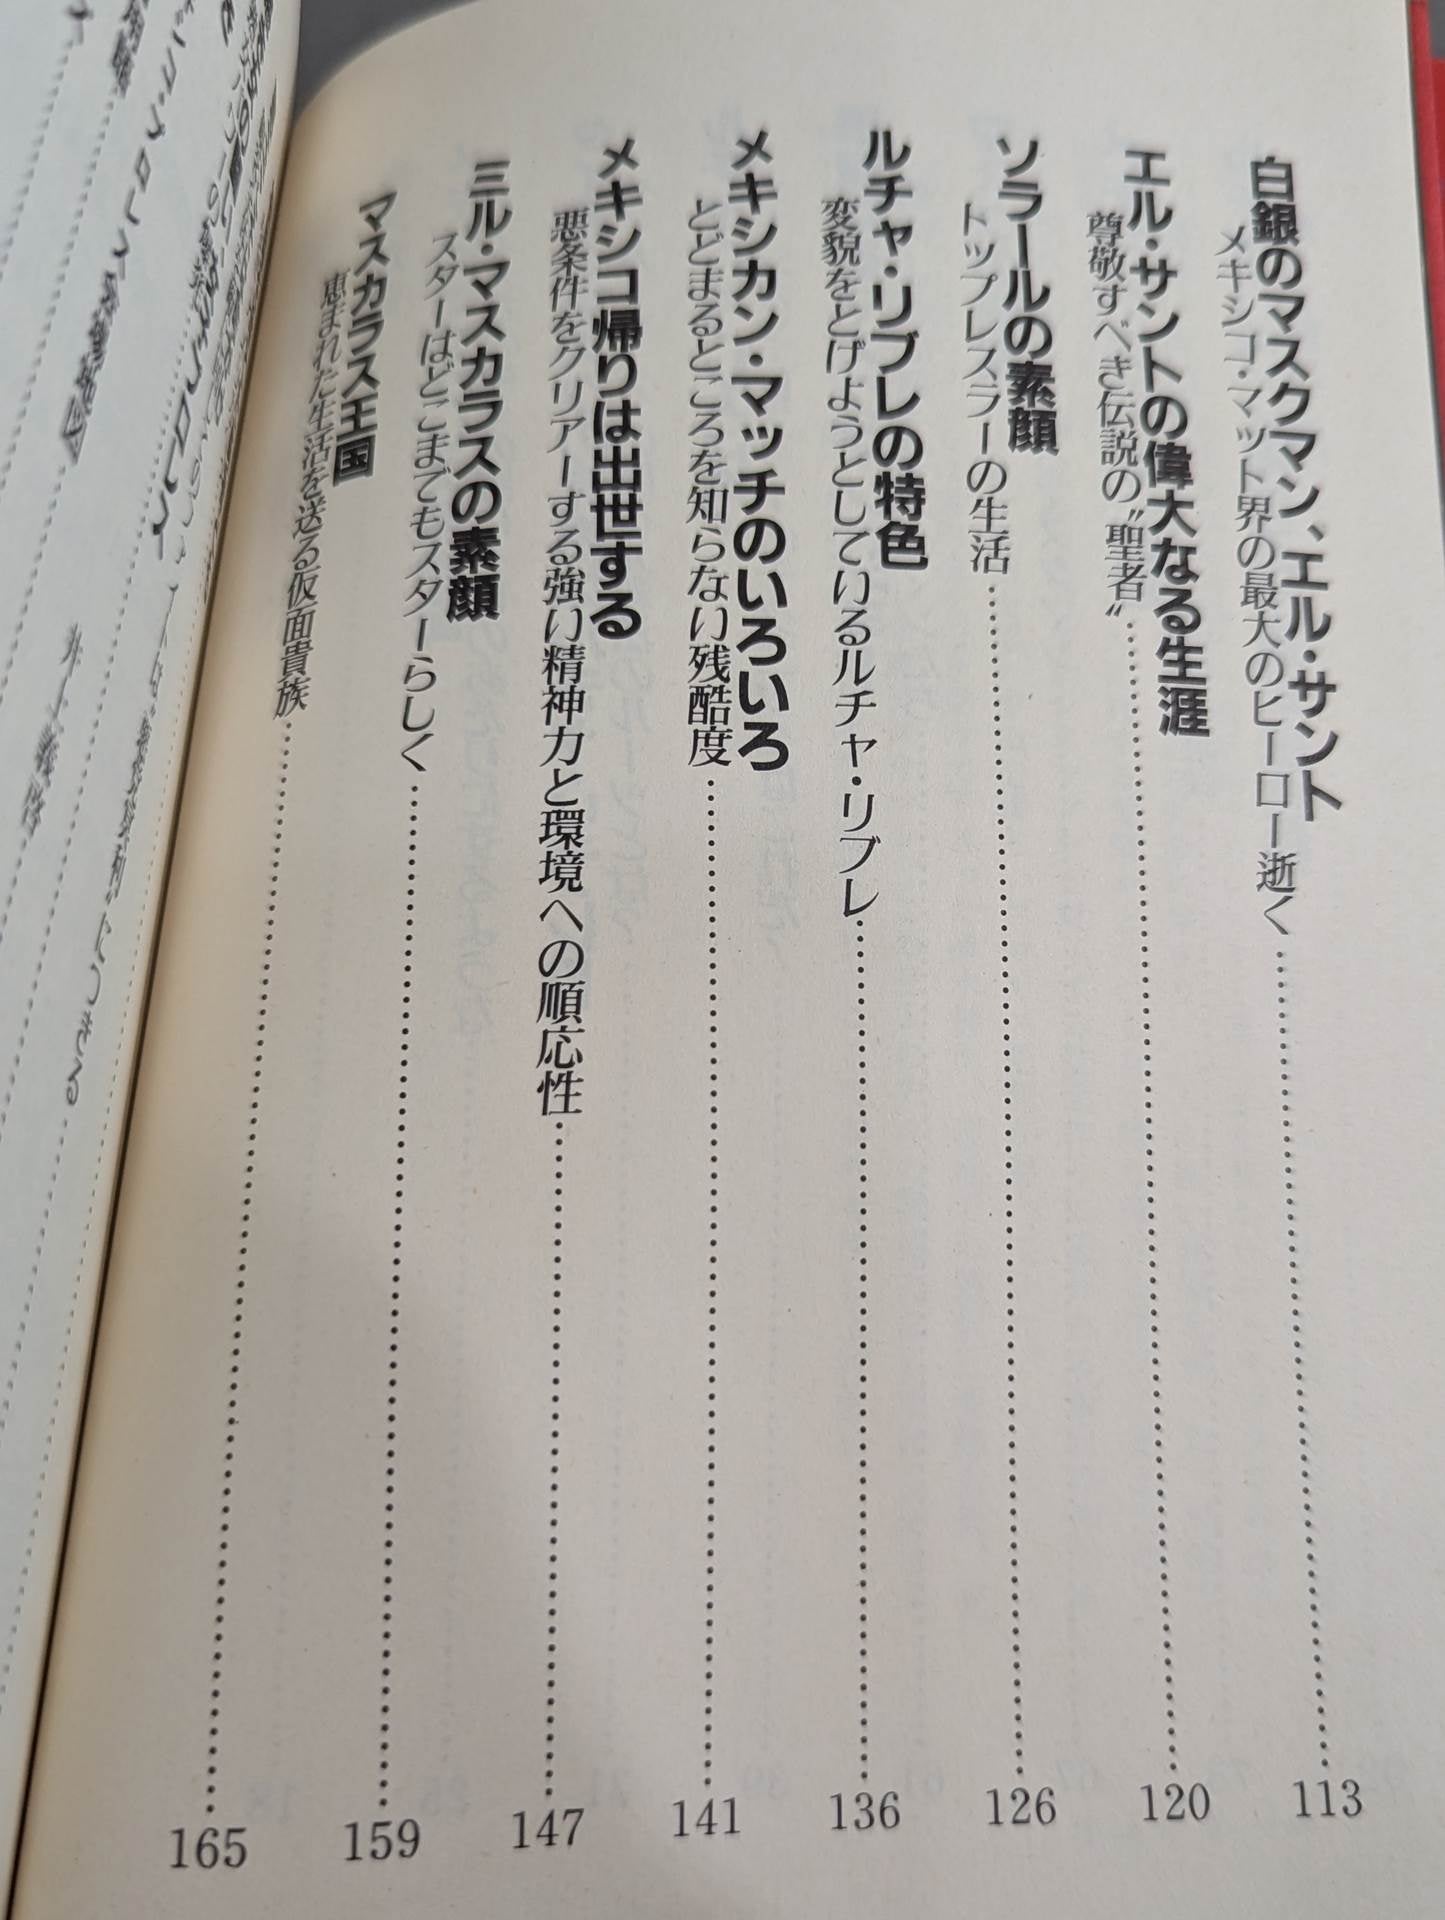 白銀のマスクマン、エル・サント
メキシコ・マット界の最大のヒーロー逝く……113
エル・サントの偉大なる生涯
尊敬すべき伝説の〝聖者〟……120
ソラールの素顔
トップレスラーの生活……126
ルチャ・リブレの特色
変貌をとげようとしているルチャ・リブレ……136
メキシカン・マッチのいろいろ
とどまるところを知らない残酷度……141
メキシコ帰りは出世する
悪条件をクリアーする強い精神力と環境への順応性……147
ミル・マスカラスの素顔
スターはどこまでもスターらしく……159
マスカラス王国
恵まれた生活を送る仮面貴族……165